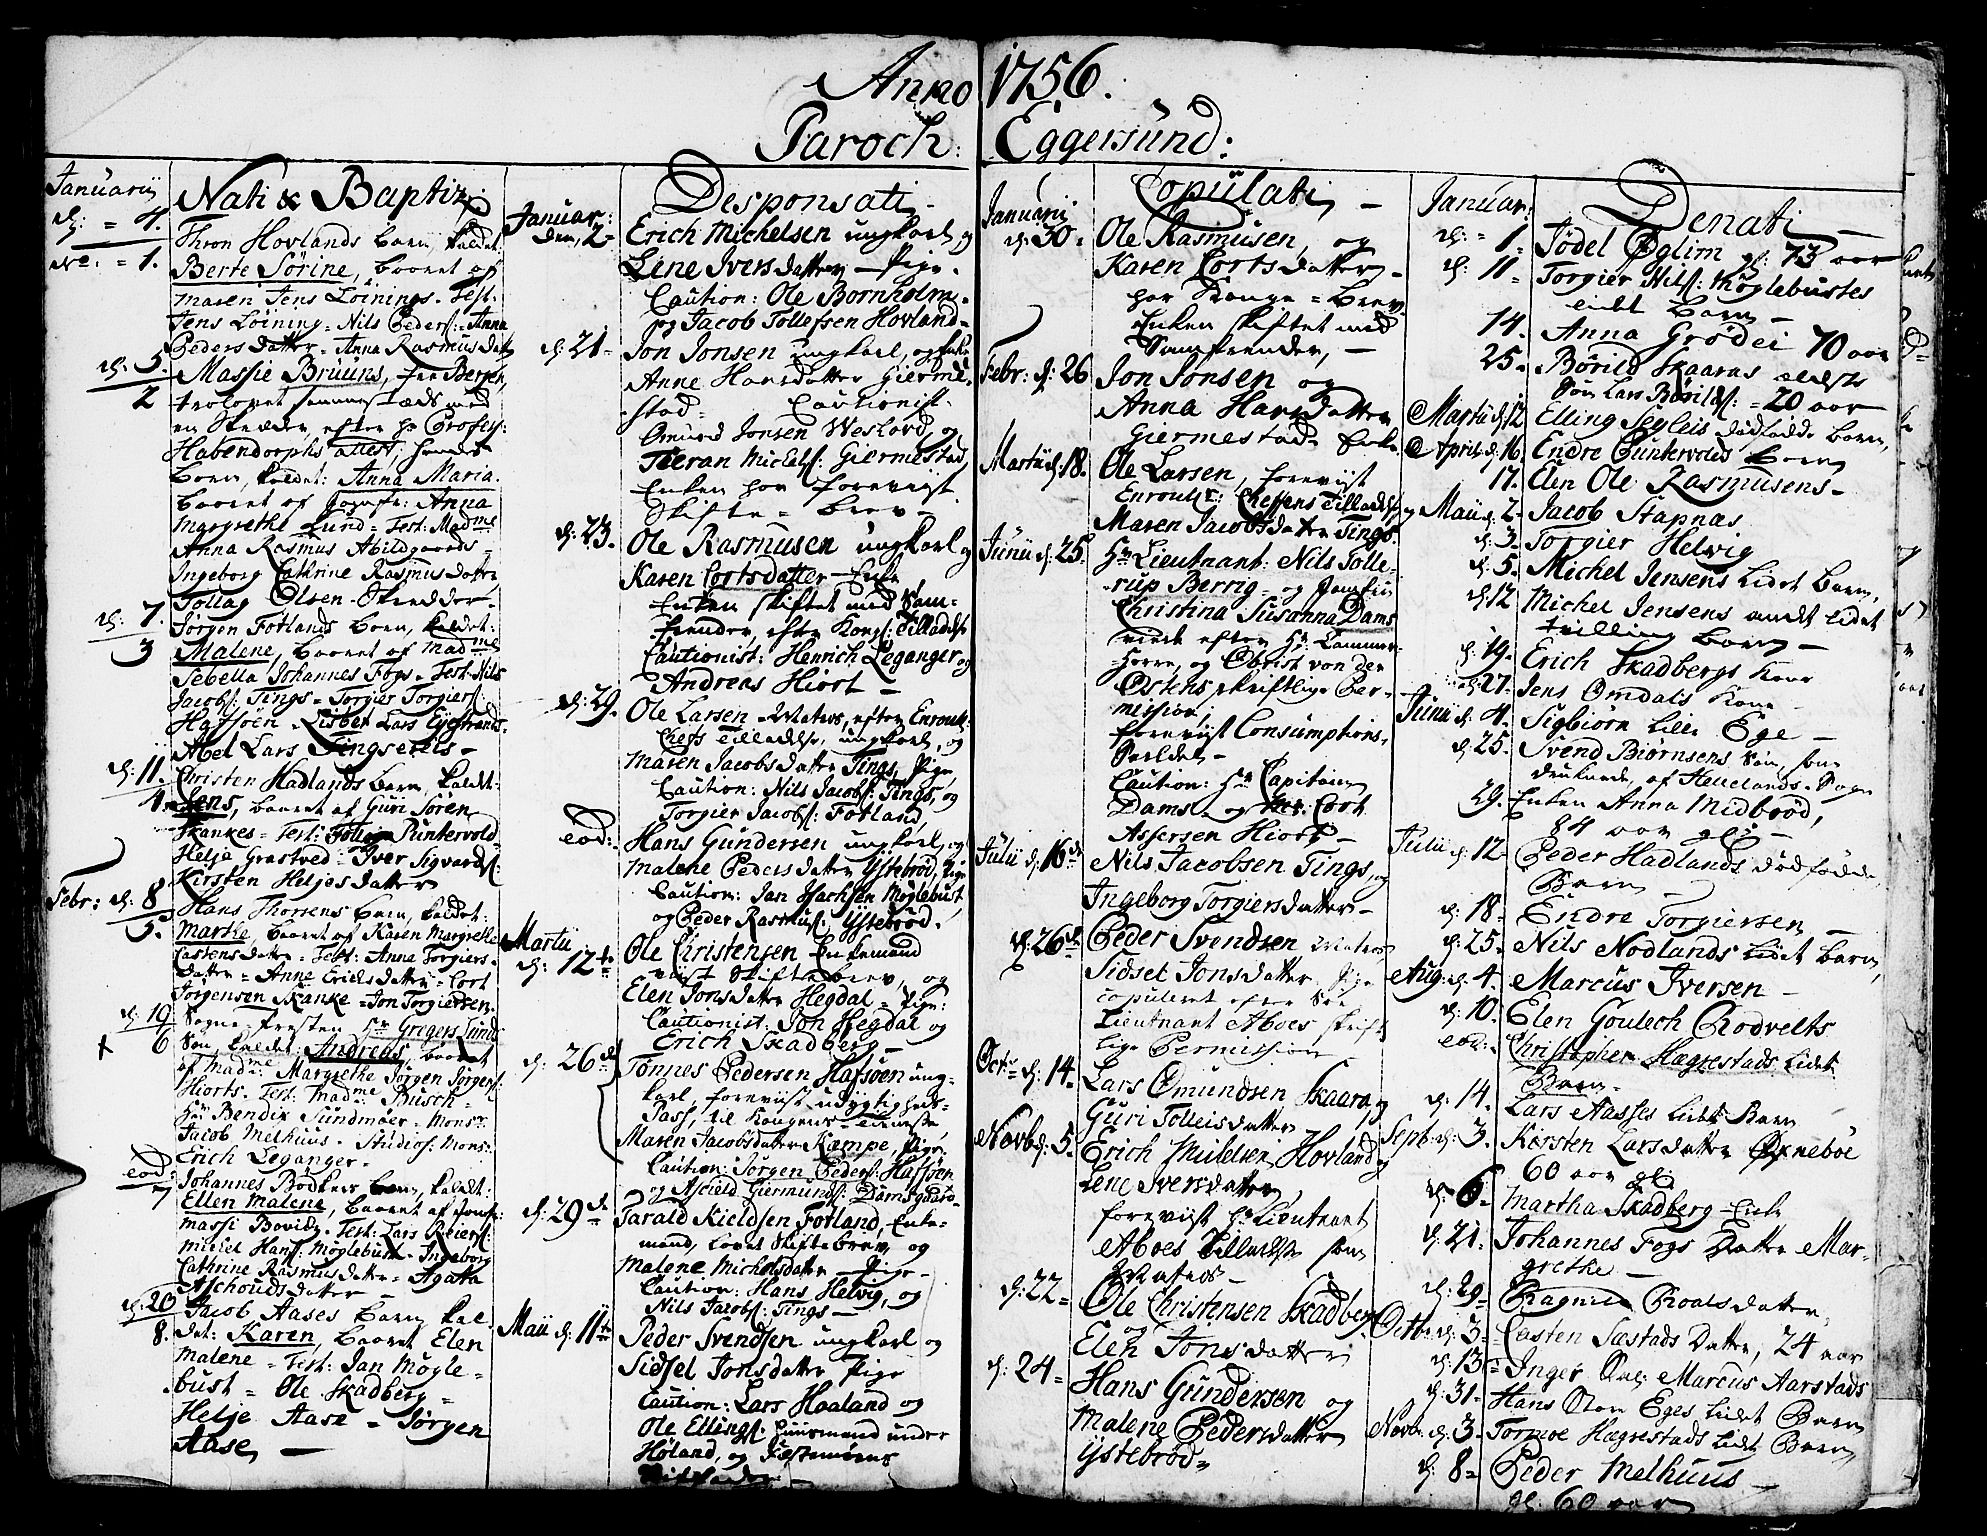 Anno 1756.
Paroch: Eggersund:
Januarii
Nati & Baptiz:
d: = 4.
No: = 1.
Thron Hovlands barn, kaldet
Berte Sørine, baaret af
Maren Jens Løinings. Test:
Jens Løining = Nils Peders: = Anna
Peders datter = Anna Rasmusdatt
d: 5.
2
Massie Brüüns, fra Bergen,
trolovet sammestæds med
en Skredder, efter hr Profess:
Habendorphs attest, hendes
barn, kaldet: Anna Maria.
baaret af Jomfr: Anna
Margrethe Lund = Test: Madme
Anna Rasmus Abildgaards =
Ingeborg Cathrine Rasmusdatter
Tollag Olsen Skredder.
d: 7.
3
Jørgen Fotlands barn, kaldet:
Malene, baaret af Madme
Sebella Johannes Fogs = Test: Nils
Jacobs: Tings = Torgier Torgiers:
Hafsøen = Lisbet Lars Eyestrands =
Abel Lars Tingsetels =
d: 11.
4
Christen Hadlands barn, kaldet:
Jens, baaret af Guri Søren
Skankes = Test: Tollag Puntervold
Helje Grastved = Iver Sigvards:
Kirsten Heljesdatter
Febr: d: 8
5.
Hans Thorsens barn, kaldet:
Marthe, baaret af Karen Margrethe
Castensdatter = Test: Anna Torgiers-
datter = Anne Erichsdatter = Cort
Jørgensen Skanke = Jon Torgiersen.
d: 19
6
Sogne Presten Hr Gregers Lunds
Søn, kaldet: Andreas, baaret
af Madme: Margrethe Jørgen Jørgens:
Hiorts. Test: Madme Busch =
Hr Bendix Sundmøer = Monsr
Jacob Melhuus = Studios: Monsr:
Erich Leganger.
eod:
7
Johannes Bødkers barn, kaldet:
Ellen Malene, baaret af Jomfr:
Massi Bovitz = Test: Lars Reiers:
Michel Hans: Møglebust = Ingeborg
Cathrine Rasmusdatter = Agata
Aschouds datter =
d: 20
8.
Jacob Aases Barn kal
det: Karen, baaret Elen
Malene = Test: Jan Møgle =
bust = Ole Skadberg =
Helje Aase = Jørgen
Aase, —
Desponsati
Januar:
den, 2
Erich Michelsen ungkarl og
Lene Iversdatter — Pige.
Caution: Ole Bornholm.
og Jacob Tollefsen Hovland =
d: 21
Jon Jonsen ungkarl, og Enke
Anne Hansdatter Gierme-
stad = Cautionist:
Omund Jonsen Weslord, og
Tieran Michels: Giermestad,
Enken har foreviist
Skifte = brev =
d: 23.
Ole Rasmusen ungkarl og
Karen Cortsdatter Enke
Enken skiftet med Sam-
frender, efter Kongl: Tilladelse
Cautionist: Henrich Leganger og
Andreas Hiort —
d: 29.
Ole Larsen Matros, efter Enroul:
Chefs Tilladelse, ungkarl, og
Maren Jacobsdatter Tings, Pige,
Caution: Nils Jacobs: Tings, og
Torgier Jacobs: Fotland,
eod:
Hans Gundersen ungkarl, og
Malene Pedersdatter Ystebrød, Pige
Caution: Jan Jachsen Møglebust,
og Peder Rasmus: Ystebrød.
Martii
d: 12te
Ole Christensen Enkemand
viist Skiftebrev, og
Elen Jonsdatter Hegdal = Pige:
Cautionist: Jon Hegdal og
Erich Skadberg —
d: 26de
Tønnes Pedersen Hafsøen ung-
karl, foreviist udygtigheds-
Pass, til Kongens Tieneste
Maren Jacobsdatter Kampe, Pige,
Caution: Jørgen Peders: Hafsøen
og Asfield Giermunds: Damsgaard
d: 29de
Tarald Kieldsen Fotland, Enke-
mand, lovet Skiftebrev, og
Malene Michelsdatter Pige
Caution: Hans Helvig, og
Nils Jacobs: Tings —
Maii d: 11te
Peder Svendsen ungkarl og
Sidsel Jonsdatter Pige
Caution: Lars Haaland og
Ole Ellings: Huusmand under
Høland, og Festemøens
Copulati —
Januarii
d: 30
Ole Rasmusen, og
Karen Cortsdatter =
har Konge = brev
Enken skiftet med
Samfrender, —
Febr: d: 26
Jon Jonsen og
Anna Hansdatter
Giermestad = Enke
Martii d: 18.
Ole Larsen, foreviist
Enroul: Cheffens Tilladelse og
Maren Jacobsdatter Tings.
Junii d: 25.
Hr Lieutnant: Nils Tolle-
rup Berrig = og Jomfru
Christina Susanna Dams
viede efter Hr Cammer-
Herre, og Obrist von der
Ostens skriftlige Per-
mission;
foreviist Consumptions-
Seddel —
Caution: Hr Capitain
Dams = og Cort
Assersen Hiort —
Julii d: 16de
Nils Jacobsen Tings, og
Ingeborg Torgiersdatter —
d: 26de
Peder Svendsen Matros
Sidsel Jonsdatter Pige
copuleret efter Søe
Lieutnant Aboes skrift
lige Permission
Octr d: 14.
Lars Omundsen Skaara, og
Guri Tolleisdatter
Novb d: 5.
Erich Michelsen Hovland og
Lene Iversdatter,
foreviist Hr Lieutnant
Aboes Tilladelse som
Matros —
d: 22
Ole Christensen Skadberg
og
Elen Jonsdatter
d: 24
Hans Gundersen og
Malene Pedersdatter
Ystebrød =
Denati —
Januar:
d: 1
Jødel Eglim gl: 73 aar
d: 11
Torgier Nils: Møglebustes
lidet barn —
14.
Anna Grødei 70 aar
25.
Børild Skaaras ældste
Søn Lars Børilds: = 20 aar
Martii d: 12
Elling Segleis dødfødde barn,
April d: 16
Endre Puntervolds barn
17.
Elen Ole Rasmusens
Maii d: 2
Jacob Stapnæs
d: 3
Torgier Helvig
d: 5.
Michel Jensens lidet barn,
d: 12
Michel Jensens andet lidet
tvilling barn —
d: 19.
Erich Skadbergs Kone
d: 27
Jens Omdals Kone
Junii d: 4.
Sigbiørn lille Ege —
d: 25.
Svend Biørnsens Søn, som
druknede, af Hellelands-Sogn
29.
Enken Anna Midbrød,
84 aar gl: —
Julii d: 12
Peder Hadlands dødfødde
Barn —
d: 18
Endre Torgiersen —
d: 25.
Nils Nodlands lidet barn,
Aug: d: 4.
Marcus Iversen —
d: 10.
Elen Goulech Rodvelts
eod:
Christopher Hægrestads lidet
Barn —
d: 14.
Lars Aasses lidet Barn
Sept: d: 3.
Kirsten Larsdatter Ørneboe
60 aar gl:
d: 6
Martha Skadberg Enke
d: 21.
Johannes Fogs Datter Mar-
grethe —
d: 29
Ragnild Roalsdatter,
Octb: d: 3
Casten Sæstads Datter, 24 aar
d: 13
Inger Marcus Aarstads
d: 31
Hans Store Eges lidet Barn
Novb: d: 3
Tormoe Hægrestads lidet Barn
d: 8
Peder Melhuus —
gl: 60 aar